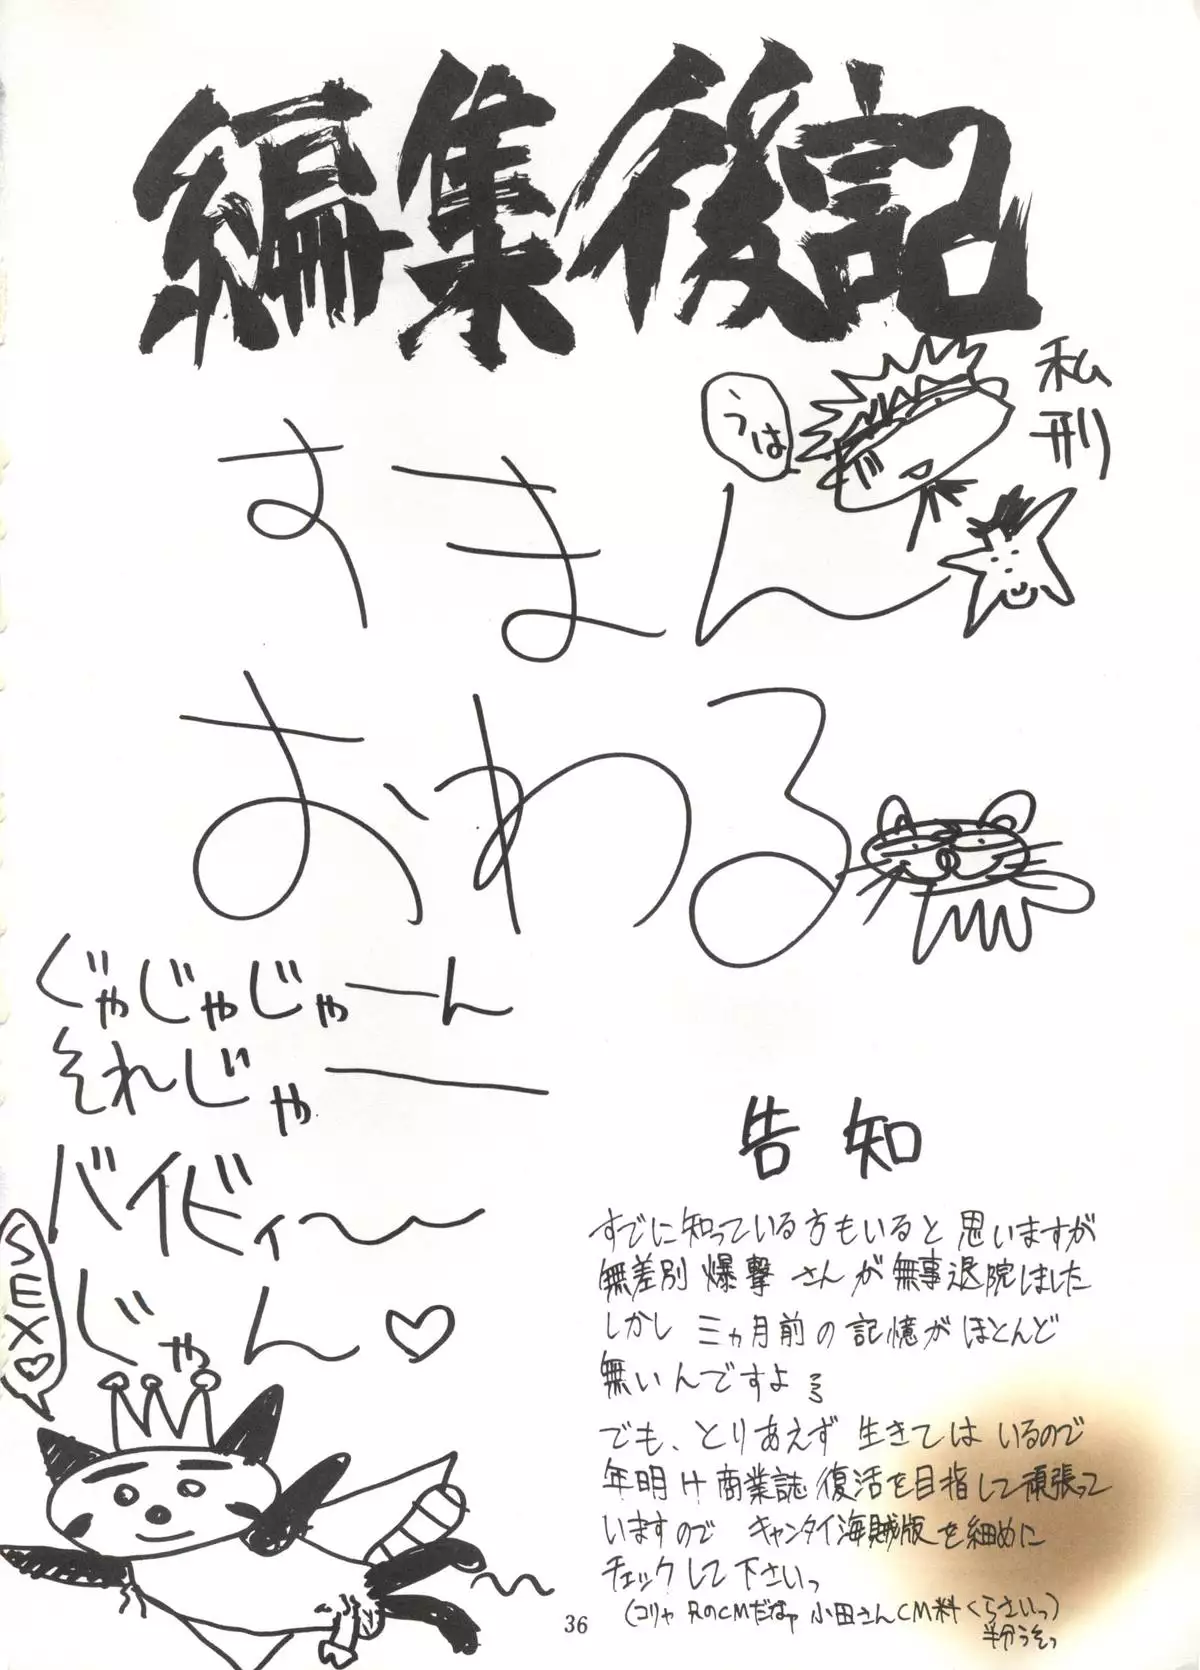 編集後記
私刑
うは
すまん
おわる
ぐゃじゃじゃーん
それじゃー
バイビィ〜
じゃん♡
SEX♡
告知
すでに知っている方もいると思いますが
無差別爆撃さんが無事退院しました
しかし三ヵ月前の記憶がほとんど
無いんですよ
でも、とりあえず生きてはいるので
年明け商業誌復活を目指して頑張って
いますので キャンタイ海賊版を細めに
チェックして下さいっ
(コリャ RのCMだなァ 小田さんCM料くらさいっ)
半分うそっ
36